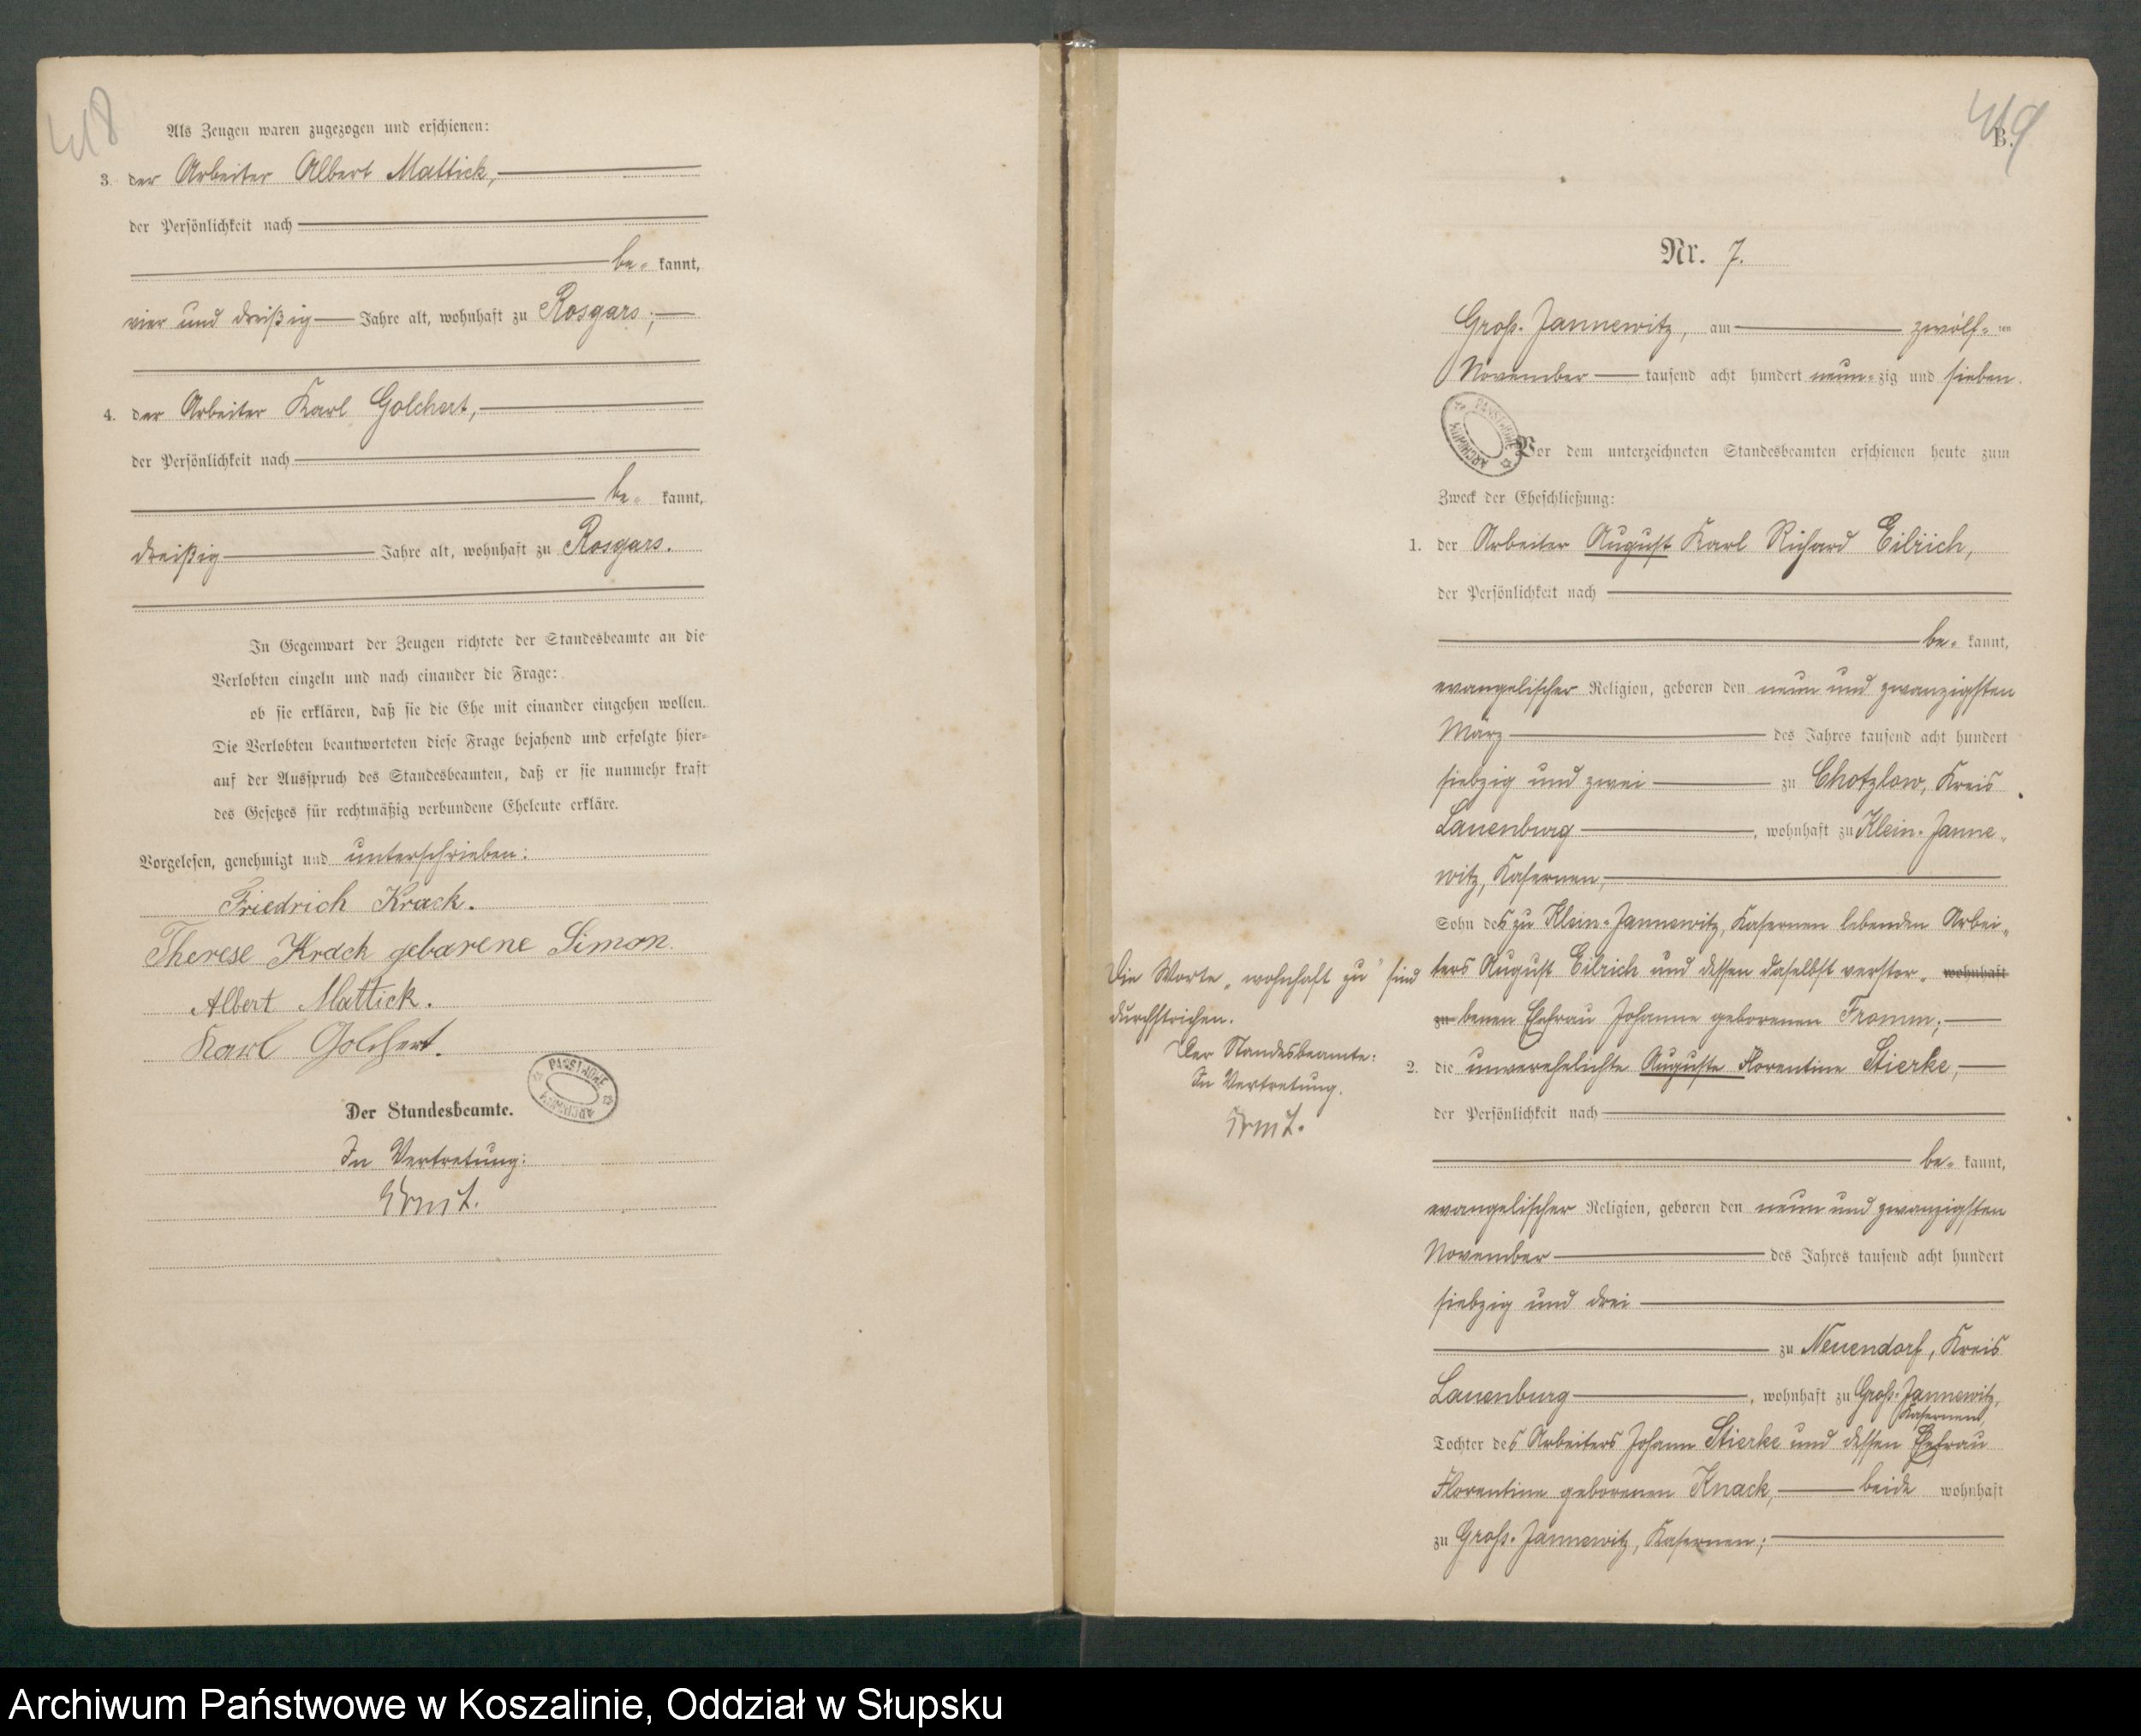 418
Als Zeugen waren zugezogen und erschienen:
3. der Arbeiter Albert Mattick,
der Persönlichkeit nach
be= kannt,
vier und dreißig Jahre alt, wohnhaft zu Rosgars;
4. der Arbeiter Karl Golchert,
der Persönlichkeit nach
be= kannt,
dreißig Jahre alt, wohnhaft zu Rosgars.
In Gegenwart der Zeugen richtete der Standesbeamte an die
Verlobten einzeln und nach einander die Frage:
ob sie erklären, daß sie die Ehe mit einander eingehen wollen.
Die Verlobten beantworteten diese Frage bejahend und erfolgte hier=
auf der Ausspruch des Standesbeamten, daß er sie nunmehr kraft
des Gesetzes für rechtmäßig verbundene Eheleute erkläre.
Vorgelesen, genehmigt und unterschrieben:
Friedrich Krack.
Therese Krack gebarene Simon.
Albert Mattick.
Karl Golchert.
Der Standesbeamte.
In Vertretung:
419
B.
Nr. 7.
Groß-Jannewitz, am zwölf= ten
November tausend acht hundert neun=zig und sieben.
Vor dem unterzeichneten Standesbeamten erschienen heute zum
Zweck der Eheschließung:
1. der Arbeiter August Karl Richard Eilrich,
der Persönlichkeit nach
be= kannt,
evangelischer Religion, geboren den neun und zwanzigsten
März des Jahres tausend acht hundert
siebzig und zwei zu Chotzlow, Kreis
Lauenburg, wohnhaft zu Klein-Janne=
witz, Kasernen,
Sohn des zu Klein-Jannewitz, Kasernen lebenden Arbei=
ters August Eilrich und dessen daselbst verstor= wohnhaft
zu benen Ehefrau Johanne geborenen Fromm;
Die Worte „wohnhaft zu“ sind
durchstrichen.
Der Standesbeamte:
In Vertretung.
2. die unverehelichte Auguste Florentine Stierke,
der Persönlichkeit nach
be= kannt,
evangelischer Religion, geboren den neun und zwanzigsten
November des Jahres tausend acht hundert
siebzig und drei
zu Neuendorf, Kreis
Lauenburg, wohnhaft zu Groß-Jannewitz,
Kasernen,
Tochter des Arbeiters Johann Stierke und dessen Ehefrau
Florentine geborenen Knack, beide wohnhaft
zu Groß-Jannewitz, Kasernen;
Archiwum Państwowe w Koszalinie, Oddział w Słupsku